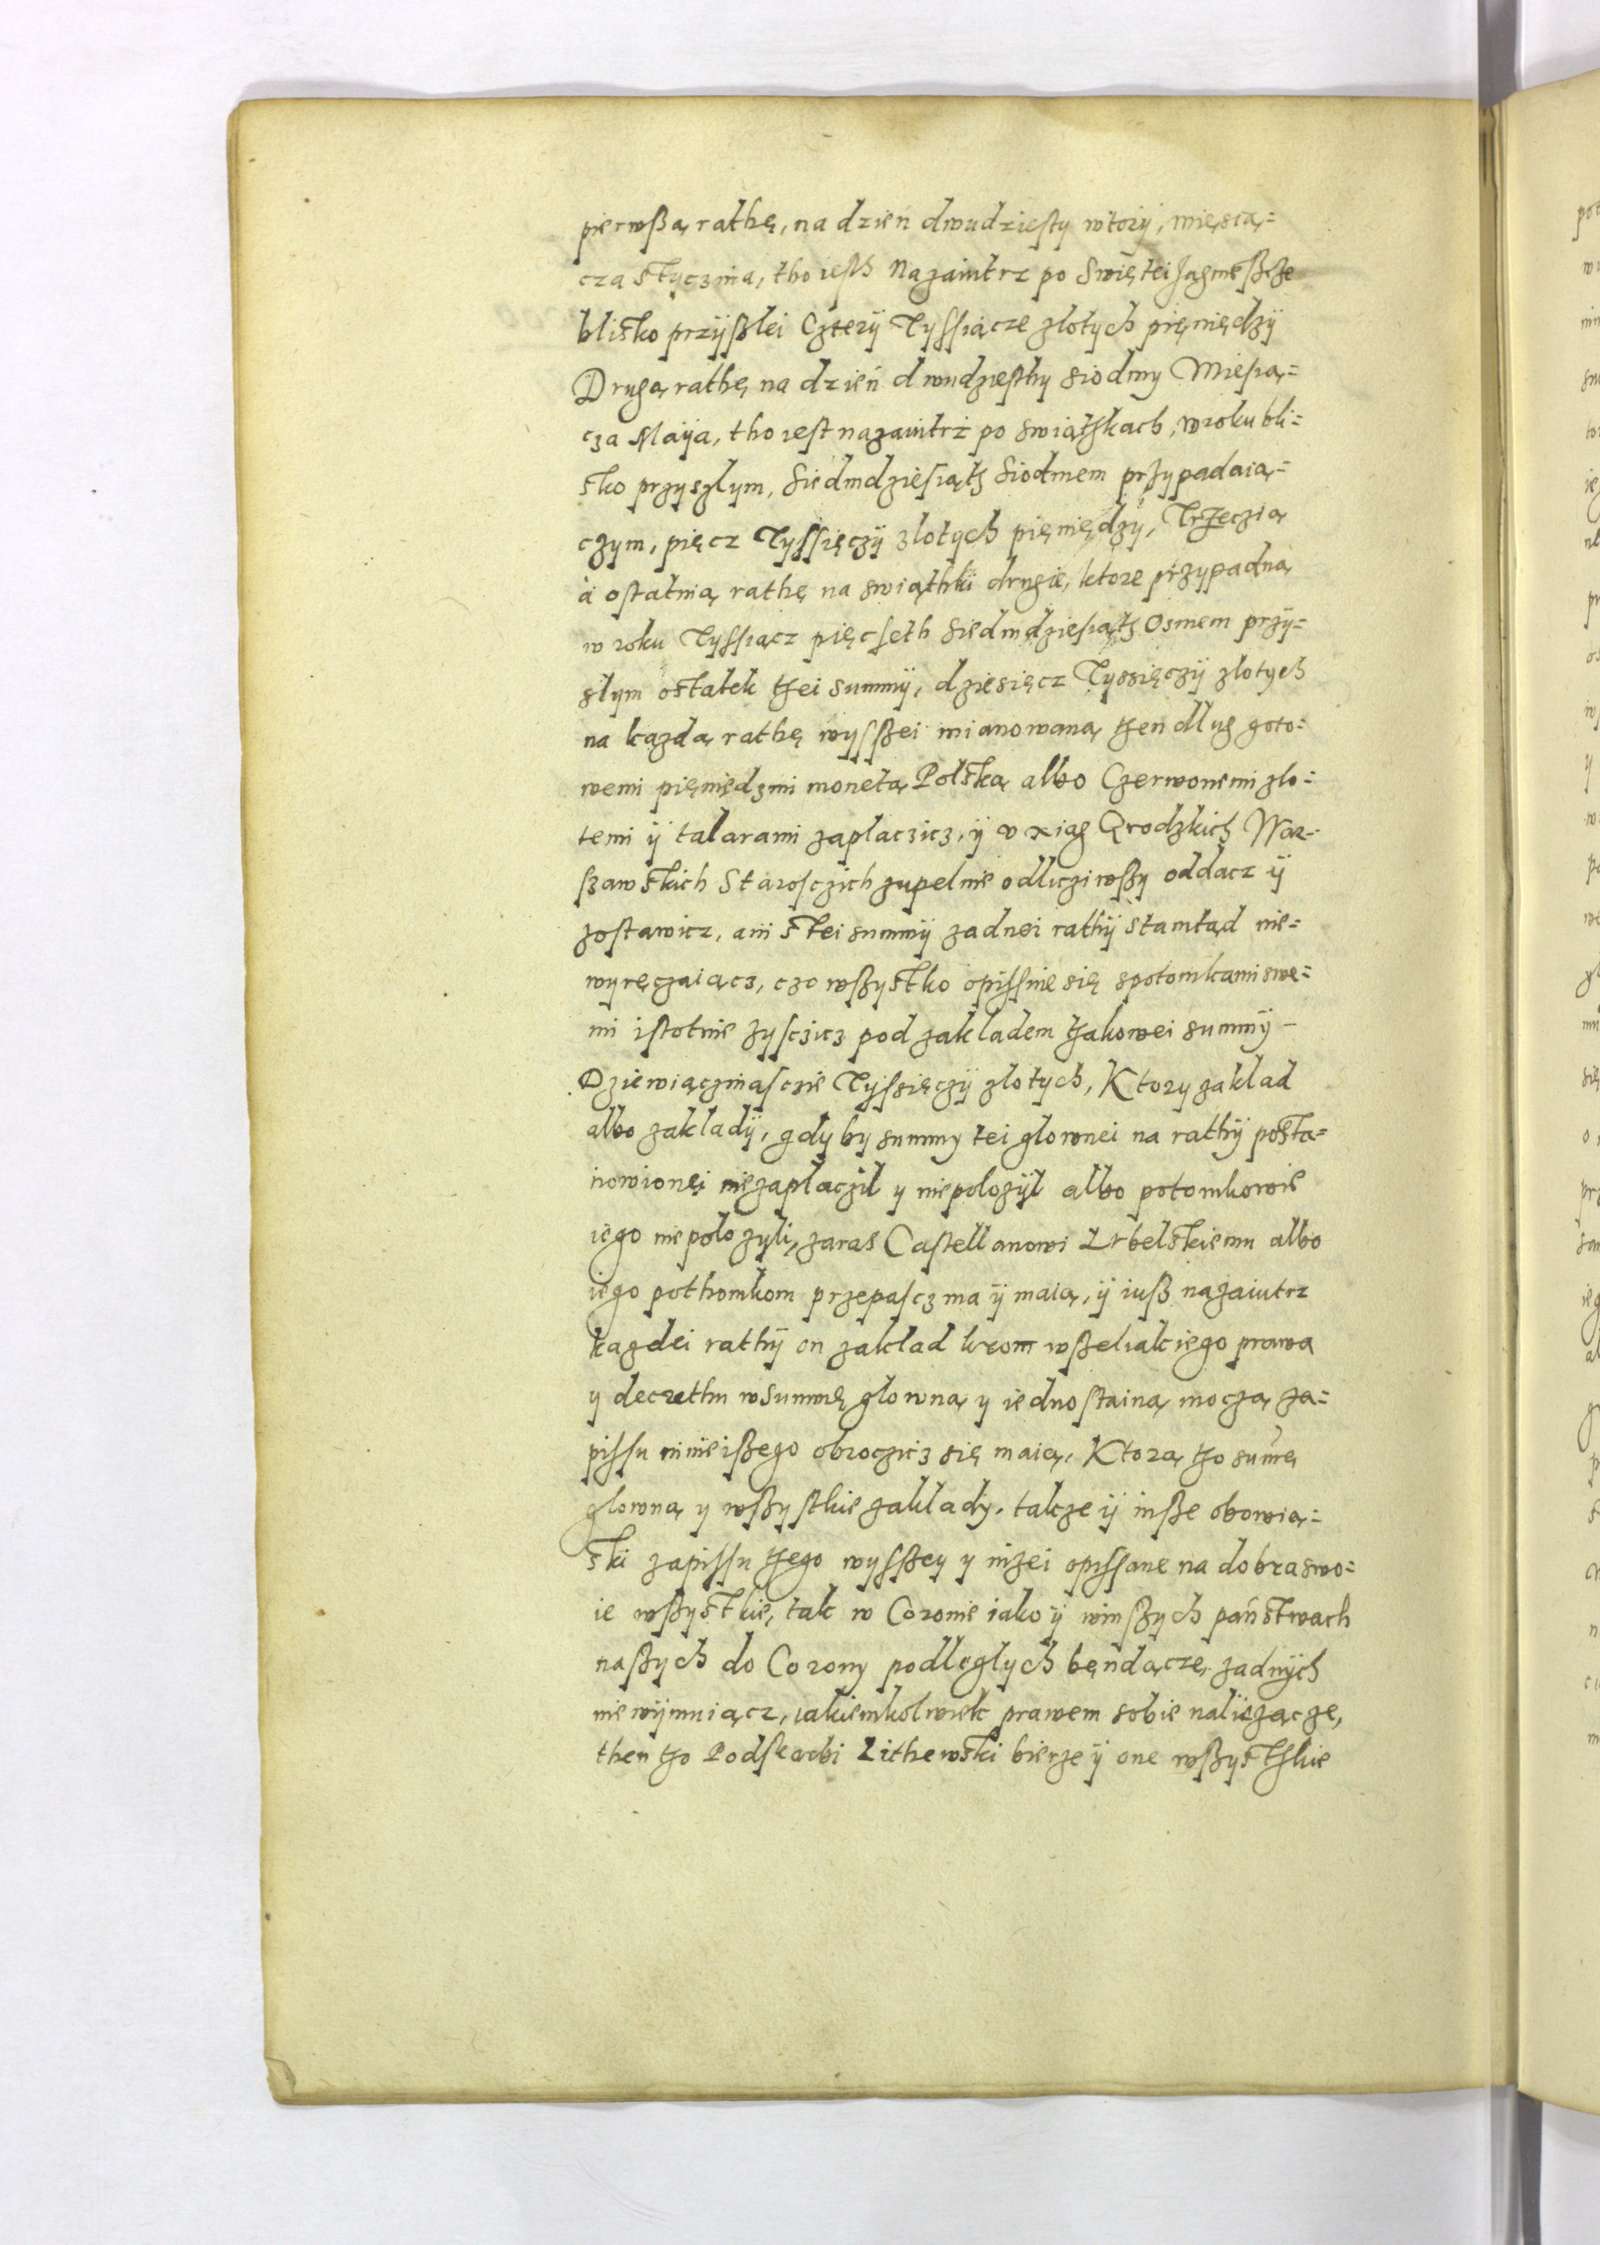 pierwßą rathę, na dzień dwudziesty wtory, mięsią=
cza stycznia, tho iesth nazaiutrz po Swiętei Jagnießce
blisko przÿßlei Czterÿ Tyssiącze zlotych pięniędzÿ
Drugą rathę na dzień dwudziesthy siodmy Miesią=
cza Maÿa, tho iest nazaiutrz po swiątzkach, w roku bli=
sko przyszlym, Siedmdziesiątz Siodmem przypadaią=
czym, pięcz Tyssięczÿ zlotych pięniędzÿ, Trzeczią
à ostatnią rathę na swiąthki drugie, ktore przypadną
w roku Tyssiącz pięcseth Siedmdziesiątz Osmem przÿ=
slym ostatek tzei summÿ, dziesięcz Tyssięczÿ zlotych
na kazdą rathę wysszei mianowaną tzen dlug goto=
wemi pięniędzmi monetą Polską albo Czerwonemi zlo=
temi ÿ talarami zaplaczicz, ÿ v xiąg Grodzkich War=
szawskich Starosczich zupelnie odlicziwßy oddacz ÿ
zostawicz, ani stei summÿ zadnei rathÿ stamtąd nie=
wyręczaiącz, czo wßystko opissuie się spotomkami swe=
mi istotnie zysczicz pod zakladem tzakowei summÿ –
Dziewiącznasczie Tyssięczÿ zlotych, Ktory zaklad
albo zakladÿ, gdy by summy tei glownei na rathÿ posta=
nowionei niezaplaczil y niepolozÿl albo potomkowie
iego niepolozyli, zaras Castellanowi Lubelskiemu albo
iego pothomkom przepascz ma ÿ maią, ÿ iuß nazaiutrz
kazdei rathÿ on zaklad krom wßeliakiego prawa
y decrethu w summę glowną y iednostainą moczą za=
pissu ninieißego obroczicz się maią, Ktorą tzo sumę
glowną y wßystkie zaklady, takze ÿ inße obowią=
ski zapissu tzego wyssßey y nizei opissane na dobra swo=
ie wßystkie, tak w Coronie iako ÿ winßych państwach
naßych do Corony podleglych będącze, zadnÿch
niewÿmuiącz, iakiemkolwiek prawem sobie nalieżącze,
then tzo Podskarbi Lithewski bierze ÿ one wßystzkie